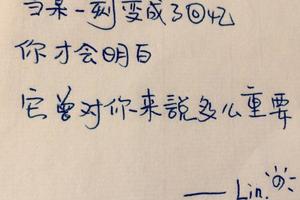 当某一刻变成了回忆
你才会明白
它曾对你来說多么重要
—— Lin.